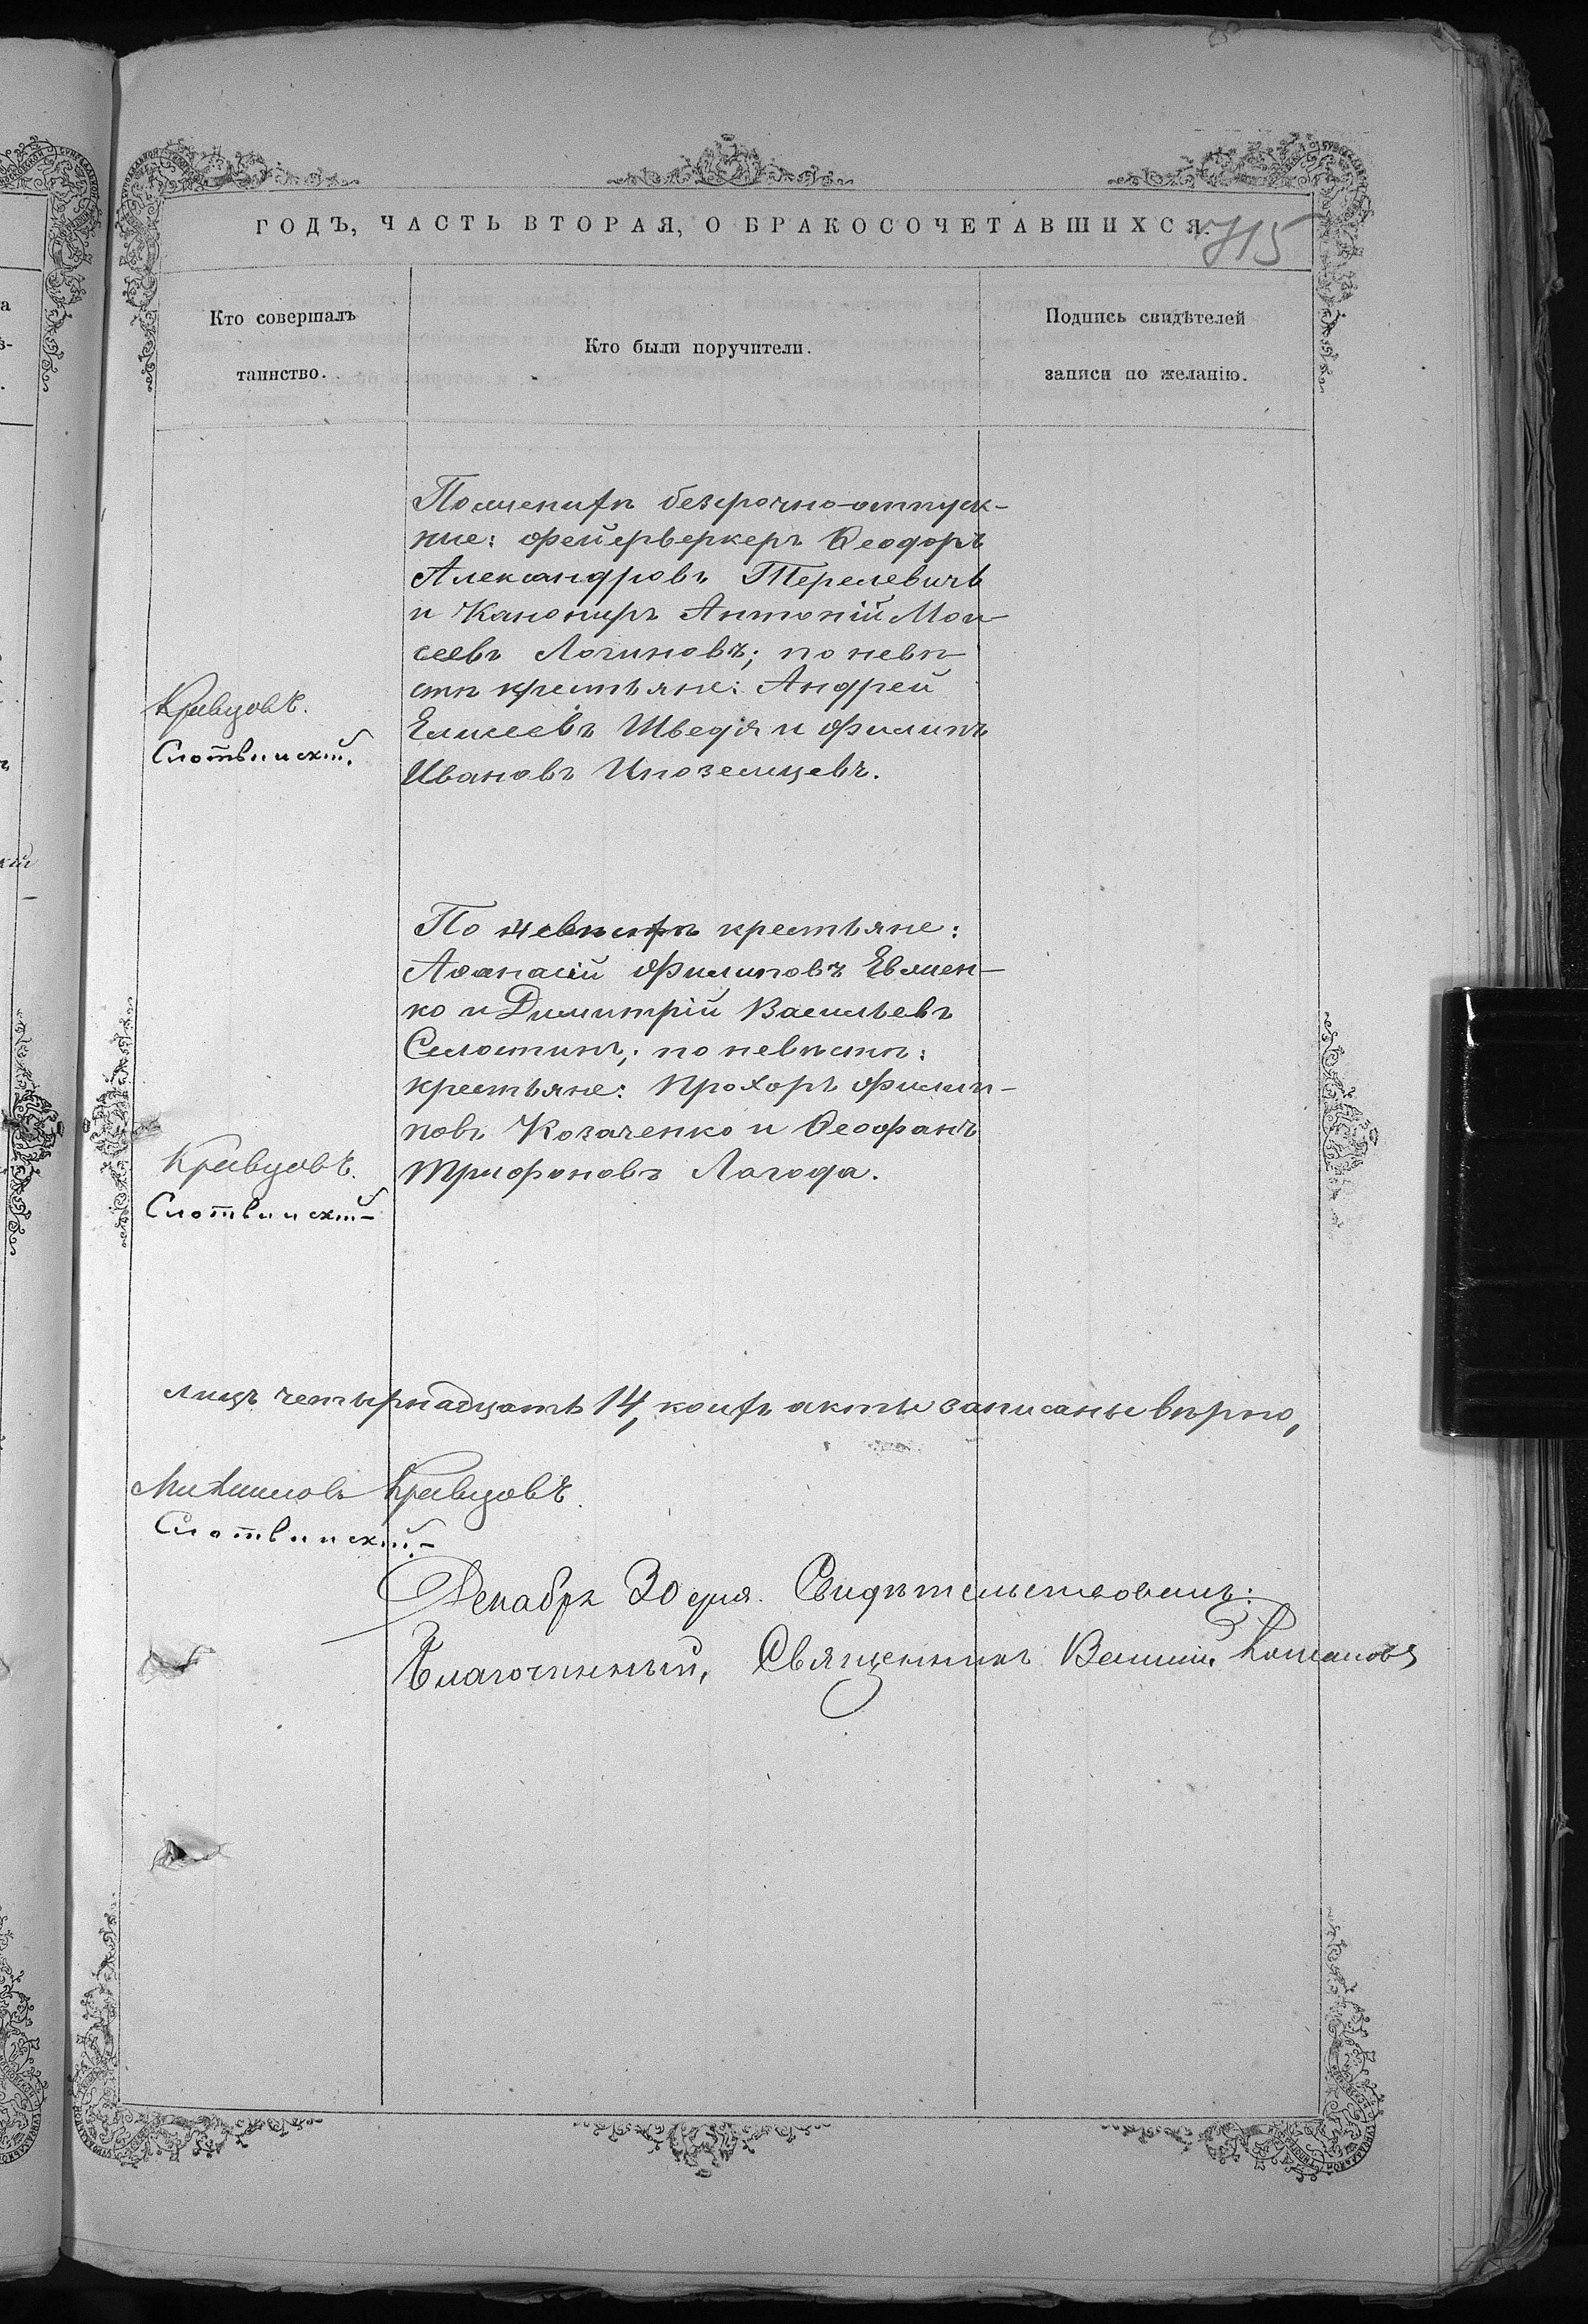 ГОДЪ, ЧАСТЬ ВТОРАЯ, О БРАКОСОЧЕТАВШИХСЯ.
715
Кто совершалъ
таинство.
Кто были поручители.
Подпись свидѣтелей
записи по желанію.
По женихѣ безсрочно-отпуск-
ные: фейерверкеръ Ѳеодоръ
Александровъ
и Канониръ Антоній Мои-
сеевъ Логиновъ; по невѣ-
стѣ крестьяне: Андрей
Елисеевъ Шведъ и Филипъ
Ивановъ Иноземцевъ.
Кравцовъ.
Слотвинскій.
По невѣстѣ крестьяне:
Аѳанасій Филиповъ Евмен-
ко и Димитрій Васильевъ
по невѣстѣ:
крестьяне: Прохоръ Филип-
повъ Козаченко и Ѳеофанъ
Трифоновъ Лагода.
Кравцовъ.
Слотвинскій-
лицъ четырнадцать 14, коихъ акты записаны вѣрно,
Михаиловъ Кравцовъ.
Слотвинскій.-
Декабря 30 дня. Свидѣтельствовалъ:
Благочинный, Священникъ Василій